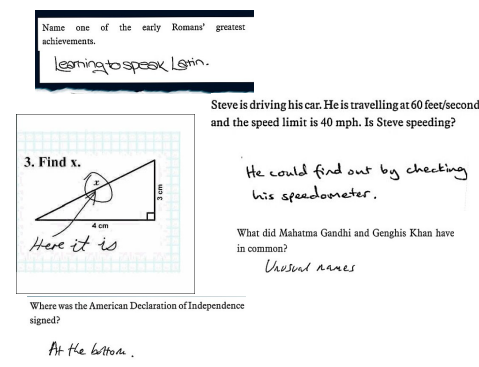 Name one of the early Romans' greatest
achievements.
Learning to speak Latin.
Steve is driving his car. He is travelling at 60 feet/second
and the speed limit is 40 mph. Is Steve speeding?
He could find out by checking
his speedometer.
3. Find x.
x
3 cm
4 cm
Here it is
What did Mahatma Gandhi and Genghis Khan have
in common?
Unusual names
Where was the American Declaration of Independence
signed?
At the bottom.